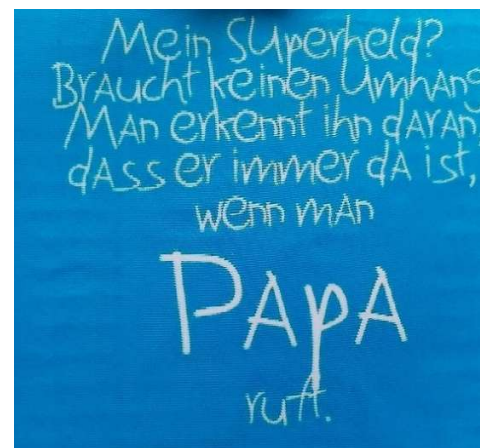 Mein Superheld?
Braucht keinen Umhang
Man erkennt ihn daran,
dass er immer da ist,
wenn man
PAPA
ruft.